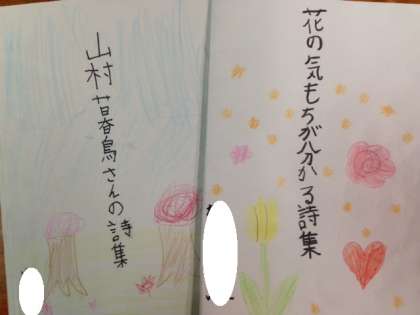 花の気もちが分かる詩集
山村暮鳥さんの詩集